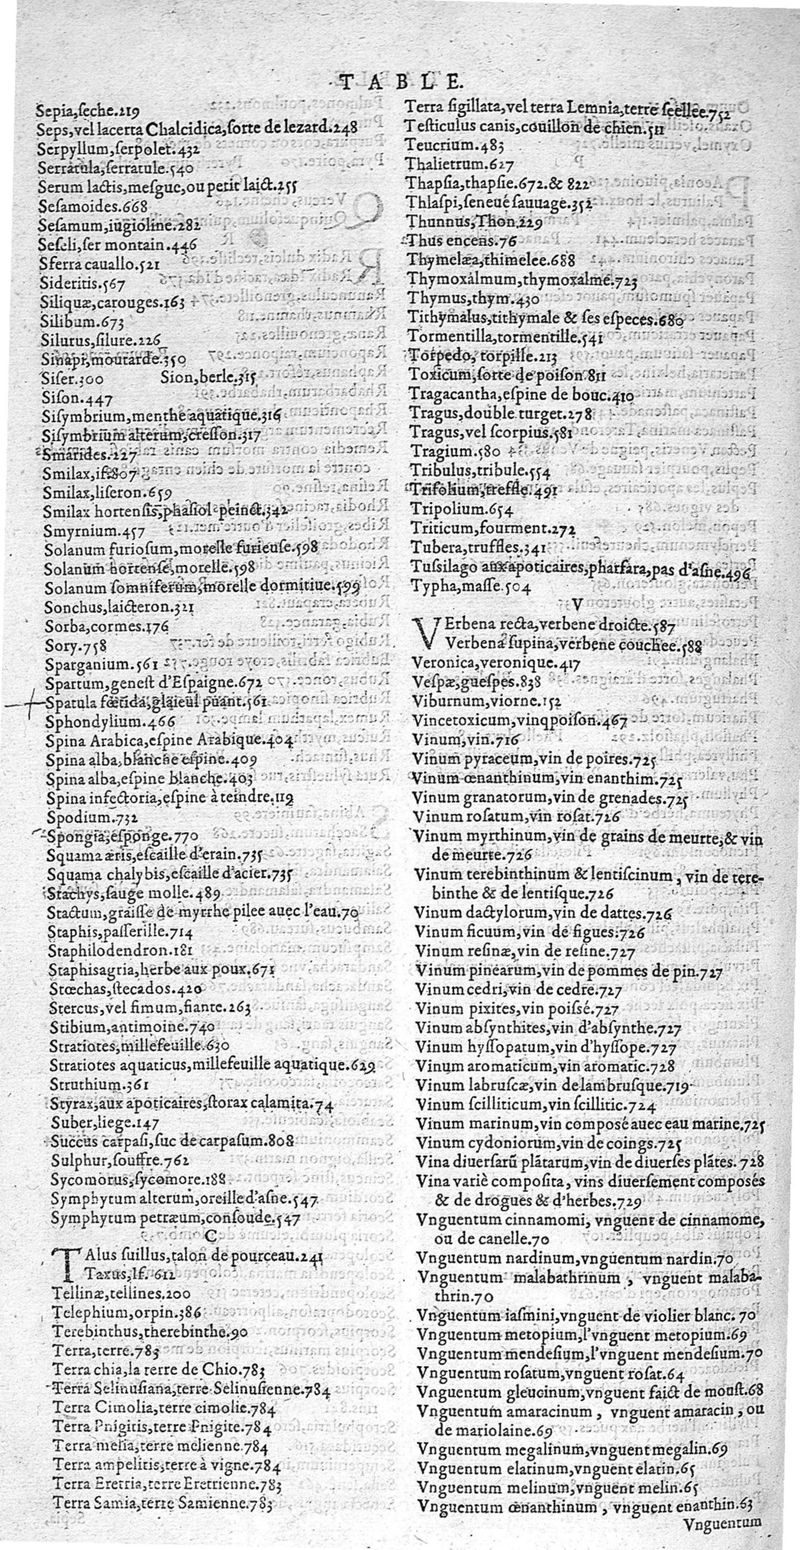 TABLE.
Sepia, seche.219
Seps, vel lacerta Chalcidica, sorte de lezard.248
Serpyllum, serpolet.432
Serratula, serratule.540
Serum lactis, mesgue, ou petit laict.255
Sesamoides.668
Sesamum, iugioline.282
Seseli, ser montain.446
Sferra cauallo.521
Sideritis.567
Siliquæ, carouges.163
Silibum.673
Silurus, silure.226
Sinapi, moutarde.350
Siser.300 Sion, berle.315
Sison.447
Sisymbrium, menthe aquatique.316
Sisymbrium alterum, cresson.317
Smarides.227
Smilax, if.807
Smilax, liseron.659
Smilax hortensis, phasiol peinct.342
Smyrnium.457
Solanum furiosum, morelle furieuse.598
Solanum hortense, morelle.598
Solanum somniferum, morelle dormitiue.599
Sonchus, laicteron.321
Sorba, cormes.176
Sory.758
Sparganium.561
Spartum, genest d'Espaigne.672
Spatula fœtida, glaieul puant.561
Sphondylium.466
Spina Arabica, espine Arabique.404
Spina alba, blanche espine.409
Spina alba, espine blanche.403
Spina infectoria, espine à teindre.119
Spodium.732
Spongia, esponge.770
Squama æris, escaille d'erain.735
Squama chalybis, escaille d'acier.735
Stachys, sauge molle.489
Stactum, graisse de myrrhe pilee auec l'eau.70
Staphis, passerille.714
Staphilodendron.181
Staphisagria, herbe aux poux.671
Stœchas, stecados.420
Stercus, vel fimum, fiante.263
Stibium, antimoine.740
Stratiotes, millefeuille.630
Stratiotes aquaticus, millefeuille aquatique.629
Struthium.361
Styrax, aux apoticaires, storax calamita.74
Suber, liege.147
Succus carpasi, suc de carpasum.808
Sulphur, souffre.762
Sycomorus, sycomore.188
Symphytum alterum, oreille d'asne.547
Symphytum petræum, consoude.547
TAlus suillus, talon de pourceau.241
Taxus, If.612
Tellinæ, tellines.200
Telephium, orpin.386
Terebinthus, therebinthe.90
Terra, terre.783
Terra chia, la terre de Chio.783
Terra Selinusiana, terre Selinusienne.784
Terra Cimolia, terre cimolie.784
Terra Pnigitis, terre Pnigite.784
Terra melia, terre melienne.784
Terra ampelitis, terre à vigne.784
Terra Eretria, terre Eretrienne.783
Terra Samia, terre Samienne.783
Terra sigillata, vel terra Lemnia, terre seellee.752
Testiculus canis, couillon de chien.511
Teucrium.483
Thalietrum.627
Thapsia, thapsie.672. & 822
Thlaspi, seneué sauuage.352
Thunnus, Thon.229
Thus encens.76
Thymelæa, thimelee.688
Thymoxalmum, thymoxalme.723
Thymus, thym.430
Tithymalus, tithymale & ses especes.680
Tormentilla, tormentille.541
Torpedo, torpille.213
Toxicum, sorte de poison.811
Tragacantha, espine de bouc.410
Tragus, double turget.278
Tragus, vel scorpius.581
Tragium.580
Tribulus, tribule.554
Trifolium, treffle.491
Tripolium.654
Triticum, fourment.272
Tubera, truffles.341
Tussilago aux apoticaires, pharfara, pas d'asne.496
Typha, masse.504
V
VErbena recta, verbene droicte.587
Verbena supina, verbene couchee.588
Veronica, veronique.417
Vespæ, guespes.838
Viburnum, viorne.152
Vincetoxicum, vinqpoison.467
Vinum, vin.716
Vinum pyraceum, vin de poires.725
Vinum œnanthinum, vin enanthim.725
Vinum granatorum, vin de grenades.725
Vinum rosatum, vin rosat.726
Vinum myrthinum, vin de grains de meurte, & vin
de meurte.726
Vinum terebinthinum & lentiscinum, vin de tere-
binthe & de lentisque.726
Vinum dactylorum, vin de dattes.726
Vinum ficuum, vin de figues.726
Vinum resinæ, vin de resine.727
Vinum pinearum, vin de pommes de pin.727
Vinum cedri, vin de cedre.727
Vinum pixites, vin poissé.727
Vinum absynthites, vin d'absynthe.727
Vinum hyssopatum, vin d'hyssope.727
Vinum aromaticum, vin aromatic.728
Vinum labruscæ, vin de lambrusque.719
Vinum scilliticum, vin scillitic.724
Vinum marinum, vin composé auec eau marine.725
Vinum cydoniorum, vin de coings.725
Vina diuersarū plātarum, vin de diuerses plātes.728
Vina variè composita, vins diuersement composés
& de drogues & d'herbes.729
Vnguentum cinnamomi, vnguent de cinnamome,
ou de canelle.70
Vnguentum nardinum, vnguentum nardin.70
Vnguentum malabathrinum, vnguent malaba-
thrin.70
Vnguentum iasmini, vnguent de violier blanc.70
Vnguentum metopium, l'vnguent metopium.69
Vnguentum mendesium, l'vnguent mendesium.70
Vnguentum rosatum, vnguent rosat.64
Vnguentum gleucinum, vnguent faict de moust.68
Vnguentum amaracinum, vnguent amaracin, ou
de mariolaine.69
Vnguentum megalinum, vnguent megalin.69
Vnguentum elatinum, vnguent elatin.65
Vnguentum melinum, vnguent melin.65
Vnguentum œnanthinum, vnguent enanthin.63
Vnguentum